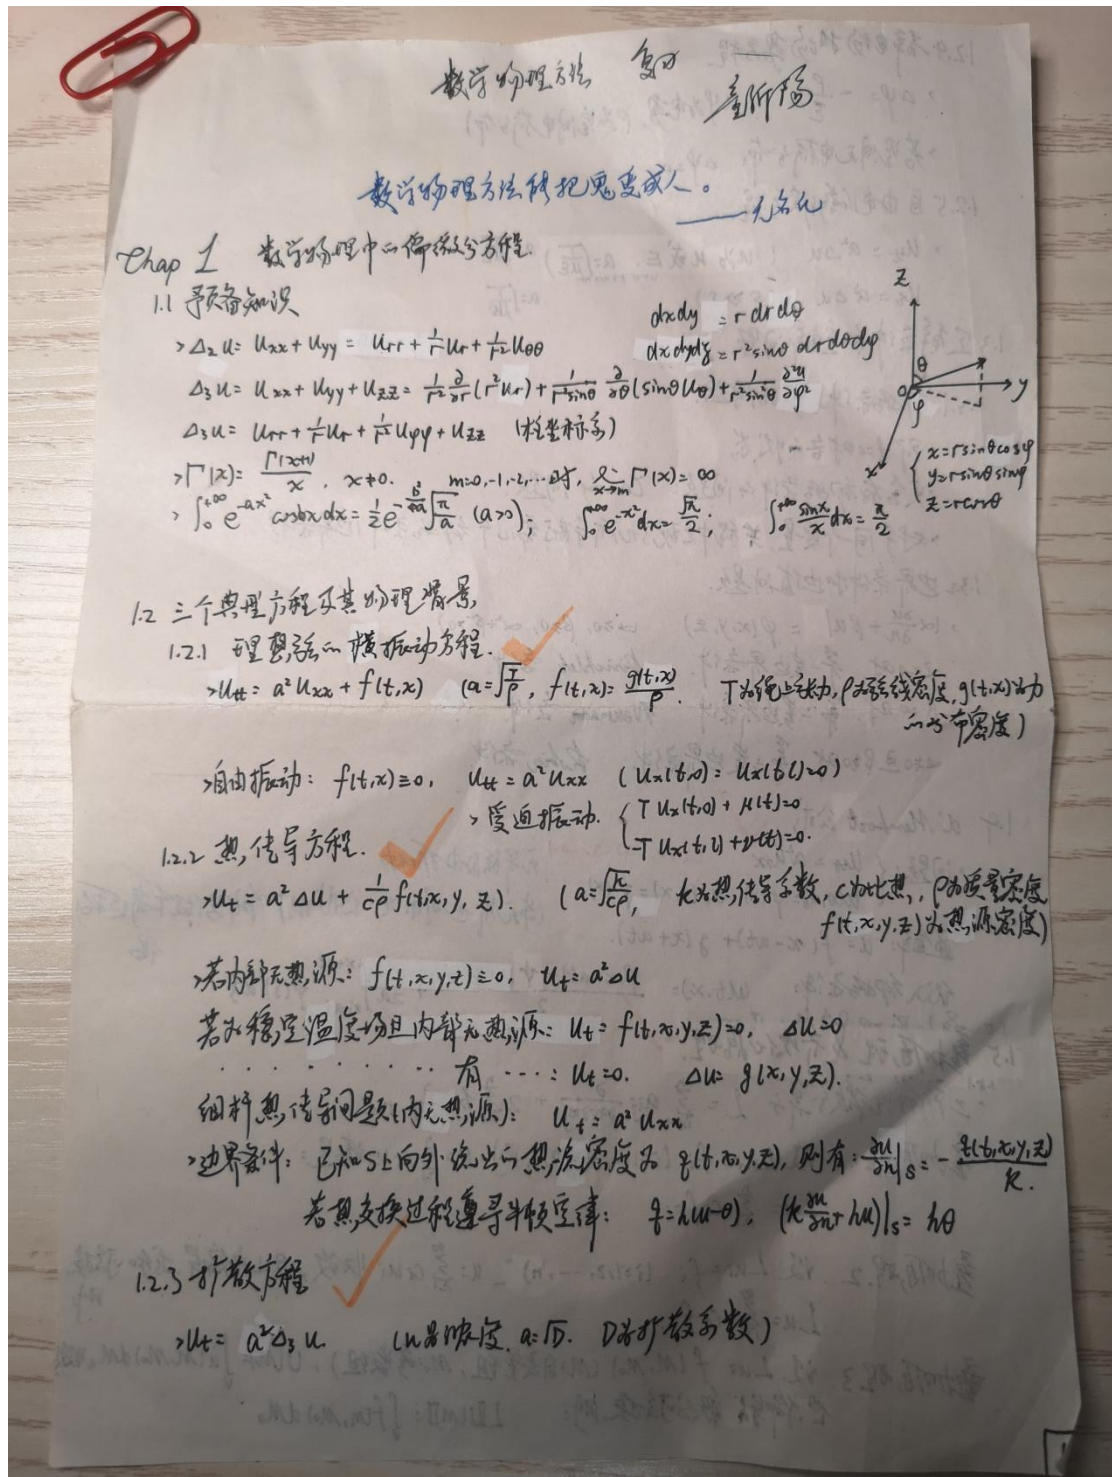 数学物理方法 复习
数学物理方法能把鬼变成人。
——无名氏
Chap 1 数学物理中的偏微分方程.
1.1 预备知识
>Δ₂u = uxx + uyy = urr + 1/r ur + 1/r² uθθ
dxdy = r dr dθ
dxdydz = r² sinθ dr dθ dφ
Δ₃u = uxx + uyy + uzz = 1/r² ∂/∂r (r² ur) + 1/(r² sinθ) ∂/∂θ (sinθ uθ) + 1/(r² sin²θ) ∂²u/∂φ²
Δ₃u = urr + 1/r ur + 1/r² uφφ + uzz (柱坐标系)
z
θ
O
y
φ
x
x = r sinθ cosφ
y = r sinθ sinφ
z = r cosθ
>Γ(x) = Γ(x+1)/x , x≠0. m=0,-1,-2,…时, lim x→m Γ(x) = ∞
> ∫₀^{+∞} e^{-ax²} cosbx dx = 1/2 e^{-b²/4a} √(π/a) (a>0); ∫₀^{+∞} e^{-x²} dx = √π/2; ∫₀^{+∞} sinx/x dx = π/2
1.2 三个典型方程及其物理背景
1.2.1 理想弦的横振动方程.
>utt = a² uxx + f(t,x) (a = √(T/ρ), f(t,x) = g(t,x)/ρ. T为绳上张力, ρ为弦线密度, g(t,x)为力
的分布密度)
>自由振动: f(t,x)≡0, utt = a² uxx (ux(t,0) = ux(t,l)=0)
>受迫振动. { T ux(t,0) + μ(t)=0
-T ux(t,l) + ν(t)=0.
1.2.2 热传导方程.
>ut = a² Δu + 1/(cρ) f(t,x,y,z). (a = √(k/(cρ)), k为热传导系数, c为比热, ρ为质量密度
f(t,x,y,z)为热源密度)
>若内部无热源: f(t,x,y,z)≡0, ut = a² Δu
若为稳定温度场且内部无热源: ut = f(t,x,y,z)=0, Δu=0
· · · · · · · · · 有 ···: ut=0. Δu = g(x,y,z).
细杆热传导问题(内无热源): ut = a² uxx
>边界条件: 已知S上向外流出的热流密度为 q(t,x,y,z), 则有: ∂u/∂n|s = - q(t,x,y,z)/k.
若热交换过程遵寻牛顿定律: q = h(u-θ), (k ∂u/∂n + hu)|s = hθ
1.2.3 扩散方程
>ut = a² Δ₃ u. (u为浓度, a=√D. D为扩散系数)
1